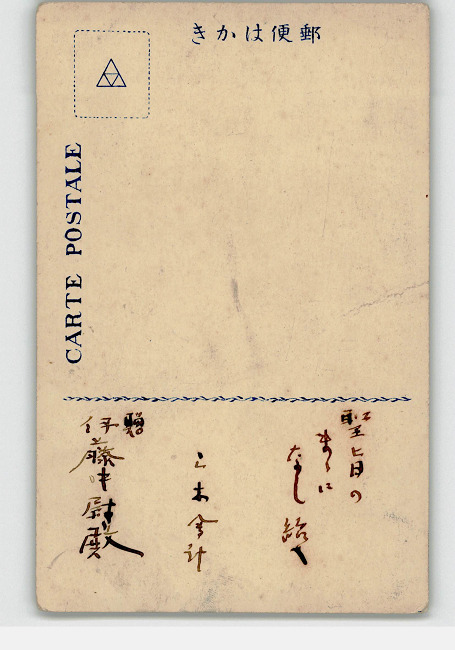 郵便はかき
CARTE POSTALE
聖旨の
まゝに
なし給へ
三木會計
贈
伊藤中尉殿